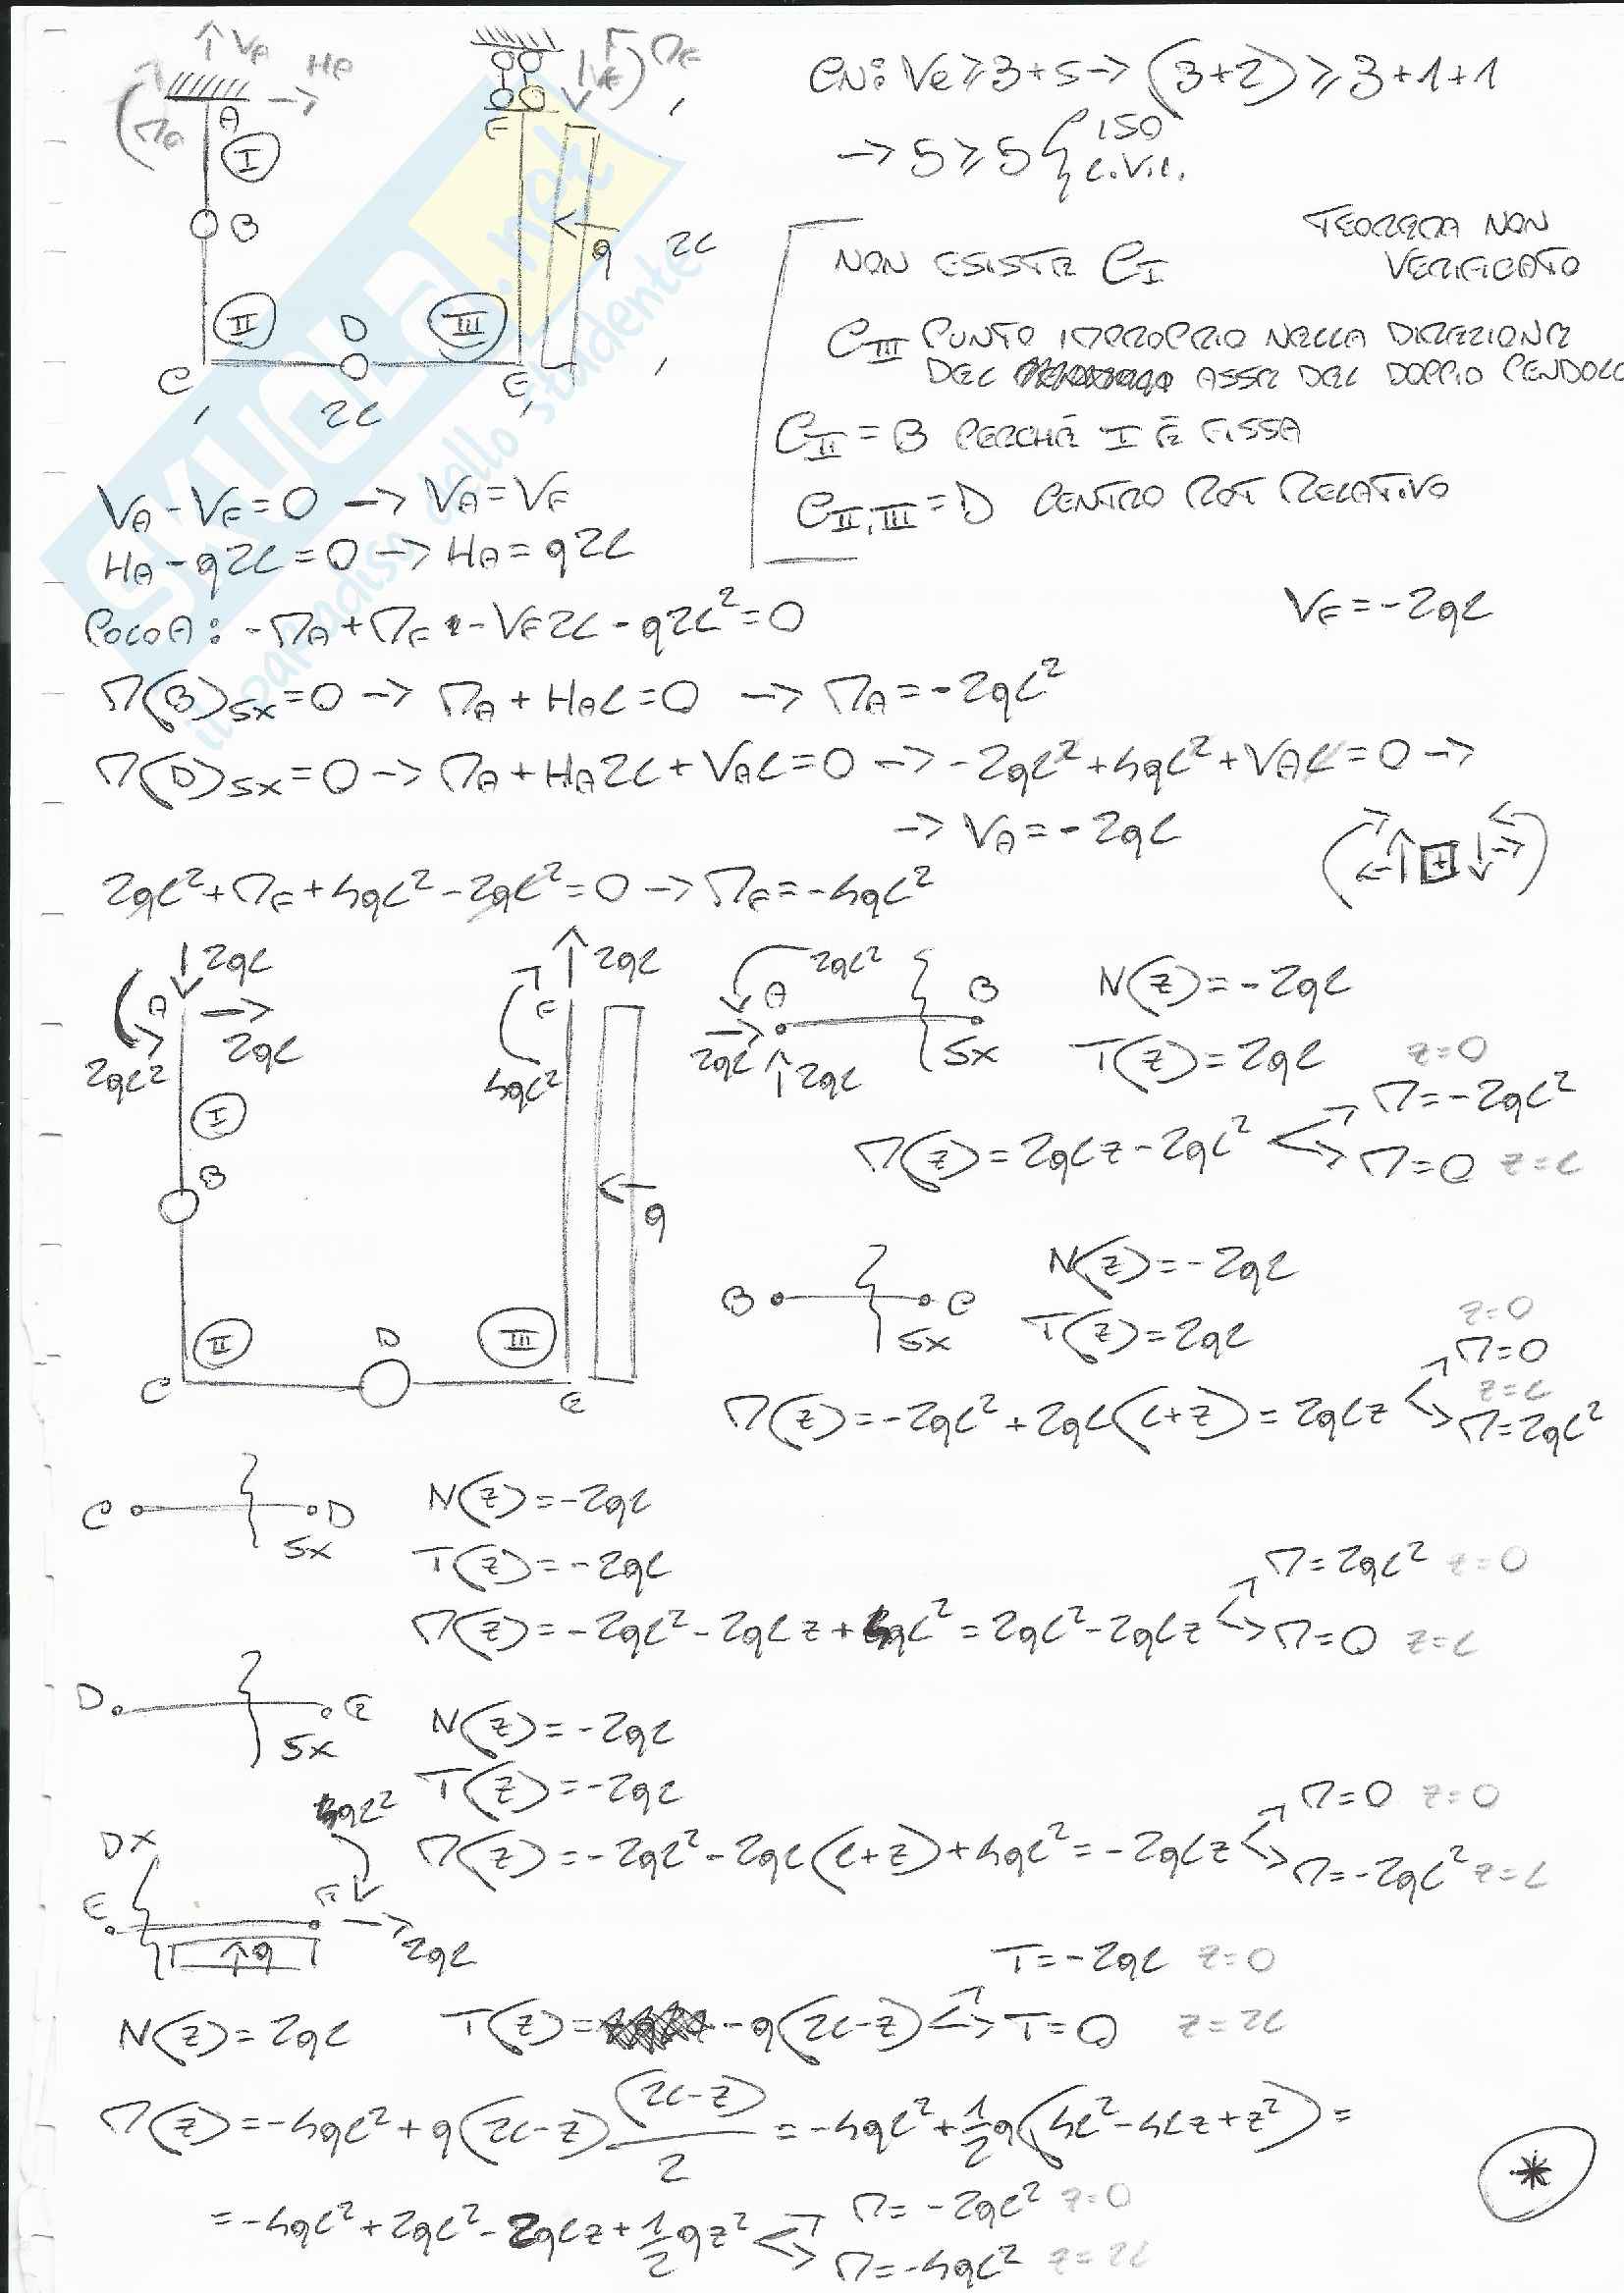 VA HA MA
A
I
B
II
D
III
C
E
2L
F
VF MF
q
2L
CN: Ve ≥ 3+S → (3+2) ≥ 3+1+1
→ 5 ≥ 5 { ISO
C.V.I.
NON ESISTE CI
TEOREMA NON
VERIFICATO
CIII PUNTO IMPROPRIO NELLA DIREZIONE
DEL ASSE DEL DOPPIO PENDOLO
CII = B PERCHÈ I È FISSA
CII,III = D CENTRO ROT RELATIVO
VA - VF = 0 → VA = VF
HA - q2L = 0 → HA = q2L
VF = -2qL
POLO A: -MA + MF - VF2L - q2L² = 0
M(B)SX = 0 → MA + HAL = 0 → MA = -2qL²
M(D)SX = 0 → MA + HA2L + VAL = 0 → -2qL² + 4qL² + VAL = 0 →
→ VA = -2qL
+
2qL² + MF + 4qL² - 2qL² = 0 → MF = -4qL²
2qL
A
2qL
2qL²
I
B
II
D
III
C
E
2qL
F
4qL²
q
2qL²
A
B
2qL
2qL
SX
N(z) = -2qL
T(z) = 2qL
M(z) = 2qLz - 2qL²
z=0
M = -2qL²
M = 0 z=L
B C
SX
N(z) = -2qL
T(z) = 2qL
M(z) = -2qL² + 2qL(L+z) = 2qLz
z=0
M = 0
z=L
M = 2qL²
C D
SX
N(z) = -2qL
T(z) = -2qL
M(z) = -2qL² - 2qLz + 4qL² = 2qL² - 2qLz
M = 2qL² z=0
M = 0 z=L
D E
SX
N(z) = -2qL
T(z) = -2qL
M(z) = -2qL² - 2qL(L+z) + 4qL² = -2qLz
M = 0 z=0
M = -2qL² z=L
4qL²
DX
E F
q
2qL
N(z) = 2qL
T(z) = -q(2L-z)
T = -2qL z=0
T = 0 z=2L
M(z) = -4qL² + q(2L-z) (2L-z)/2 = -4qL² + 1/2 q(4L² - 4Lz + z²) =
= -4qL² + 2qL² - 2qLz + 1/2 qz²
M = -2qL² z=0
M = -4qL² z=2L
*
SKUOLA.net
il paradiso dello studente